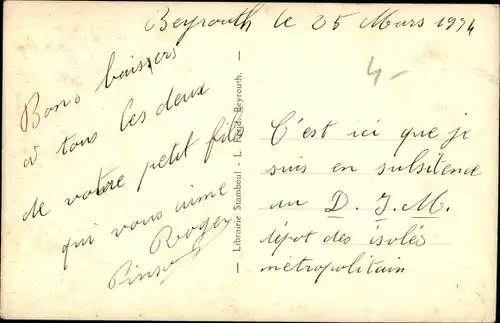 Beyrouth le 25 Mars 1934
4-
Bons baisers
à tous les deux
de votre petit fils
qui vous aime
Roger
Librairie Stamboul - L. Férid. Beyrouth.
C'est ici que je
suis en subsitence
au D. I. M.
dépot des isolés
métropolitain